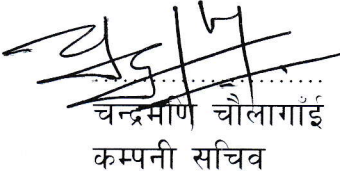 चन्द्रमणि चौलागाँई
कम्पनी सचिव